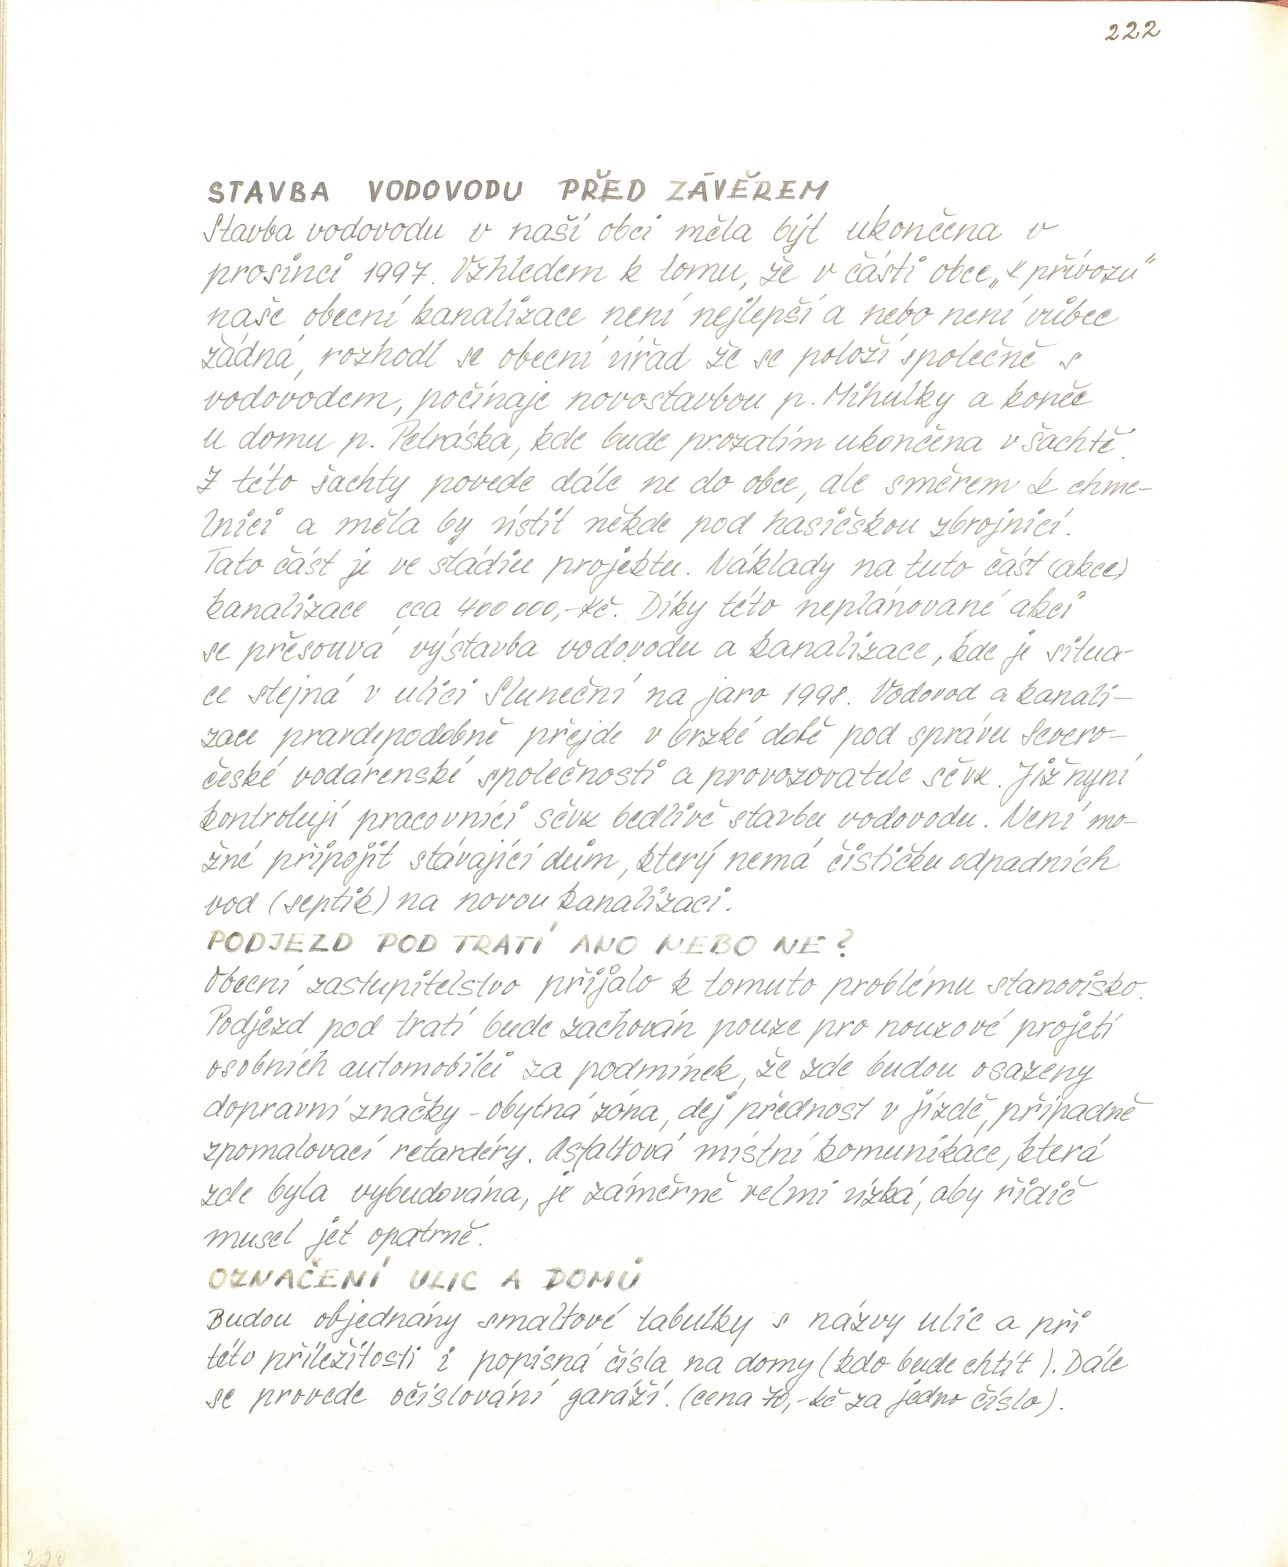 222
STAVBA VODOVODU PŘED ZÁVĚREM
Stavba vodovodu v naší obci měla být ukončena v
prosinci 1997. Vzhledem k tomu, že v části obce „k přívozu"
naše obecní kanalizace není nejlepší a nebo není vůbec
žádná, rozhodl se obecní úřad že se položí společně s
vodovodem, počínaje novostavbou p. Mihulky a konče
u domu p. Petráška, kde bude prozatím ukončena v šachtě.
Z této šachty povede dále ne do obce, ale směrem k chme-
lnici a měla by ústit někde pod hasičskou zbrojnicí.
Tato část je ve stádiu projektu. Náklady na tuto část (akce)
kanalizace cca 400 000,- kč. Díky této neplánované akci
se přesouvá výstavba vodovodu a kanalizace, kde je situa-
ce stejná v ulici Sluneční na jaro 1998. Vodovod a kanali-
zace pravděpodobně přejde v brzké době pod správu Severo-
české vodárenské společnosti a provozovatele sčvk. Již nyní
kontrolují pracovníci sčvk bedlivě stavbu vodovodu. Není mo-
žné připojit stávající dům, který nemá čističku odpadních
vod (septik) na novou kanalizaci.
PODJEZD POD TRATÍ ANO NEBO NE?
Obecní zastupitelstvo přijalo k tomuto problému stanovisko.
Podjezd pod tratí bude zachován pouze pro nouzové projetí
osobních automobilů za podmínek, že zde budou osazeny
dopravní značky - obytná zóna, dej přednost v jízdě, případně
zpomalovací retardéry. Asfaltová místní komunikace, která
zde byla vybudována, je záměrně velmi úzká, aby řidič
musel jet opatrně.
OZNAČENÍ ULIC A DOMŮ
Budou objednány smaltové tabulky s názvy ulic a při
této příležitosti i popisná čísla na domy (kdo bude chtít). Dále
se provede očíslování garáží. (cena 70,- kč za jedno číslo).
220